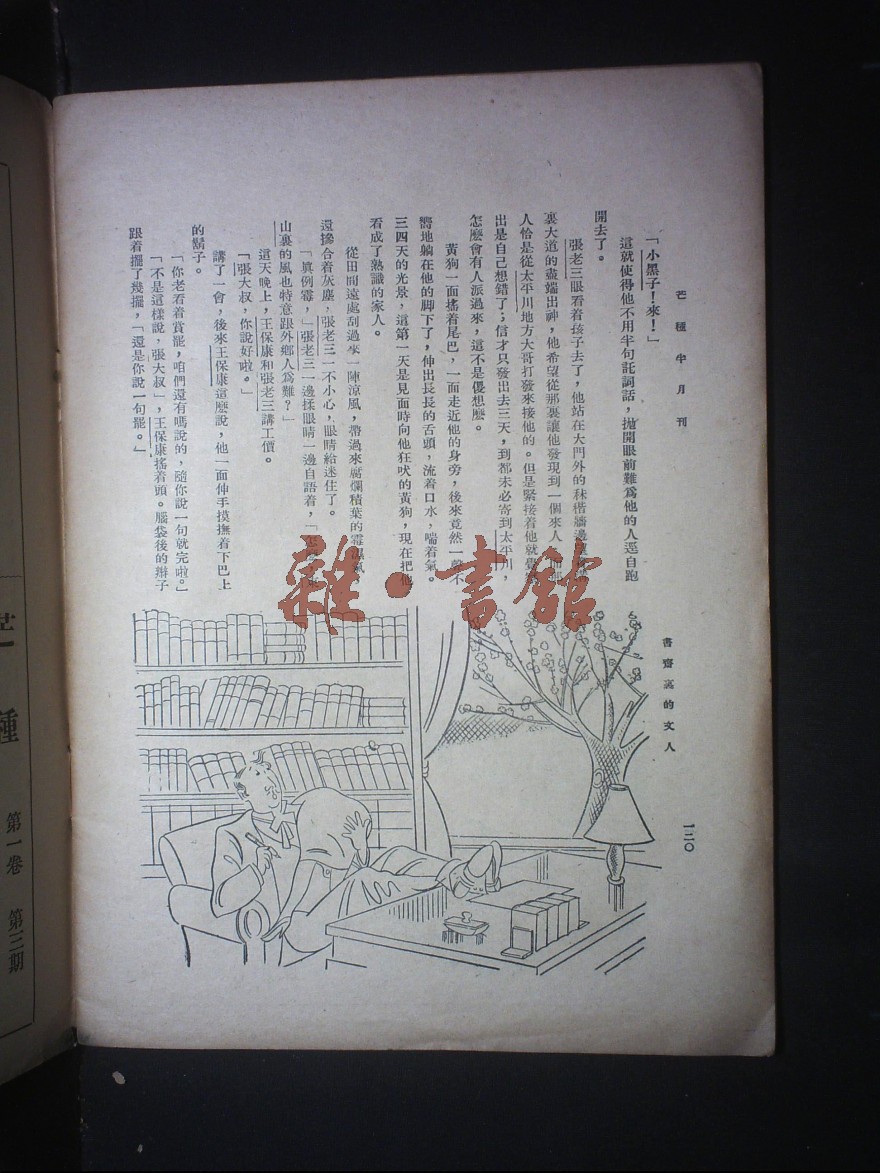 芒種半月刊
「小黑子！來！」
這就使得他不用半句託詞話，拋開眼前難爲他的人逕自跑
開去了。
張老三眼看着孩子去了，他站在大門外的秫稭牆邊
裏大道的盡端出神，他希望從那裏讓他發現到一個來人
人恰是從太平川地方大哥打發來接他的。但是緊接着他就
出是自己想錯了；信才只發出去三天，到都未必寄到太平川，
怎麼會有人派過來，這不是傻想麼。
黃狗一面搖着尾巴，一面走近他的身旁，後來竟然一聲不
嚮地躺在他的脚下了，伸出長長的舌頭，流着口水，喘着氣。
三四天的光景，這第一天是見面時向他狂吠的黃狗，現在把他
看成了熟識的家人。
從田間遠處刮過來一陣涼風，帶過來腐爛積葉的霉濕氣
還摻合着灰塵，張老三一不小心，眼睛給迷住了。
「眞倒霉，」張老三一邊揉眼睛一邊自語着，「
山裏的風也特意跟外鄉人爲難？」
這天晚上，王保康和張老三講工價。
「張大叔，你說好啦。」
講了一會，後來王保康這麼說，他一面伸手摸撫着下巴上
的鬍子。
「你老看着賞罷，咱們還有嗎說的，隨你說一句就完啦。」
「不是這樣說，張大叔」，王保康搖着頭。腦袋後的辮子
跟着擺了幾擺，「還是你說一句罷。」
書齋裏的文人
一二〇
雜·書館
種
第一卷 第三期